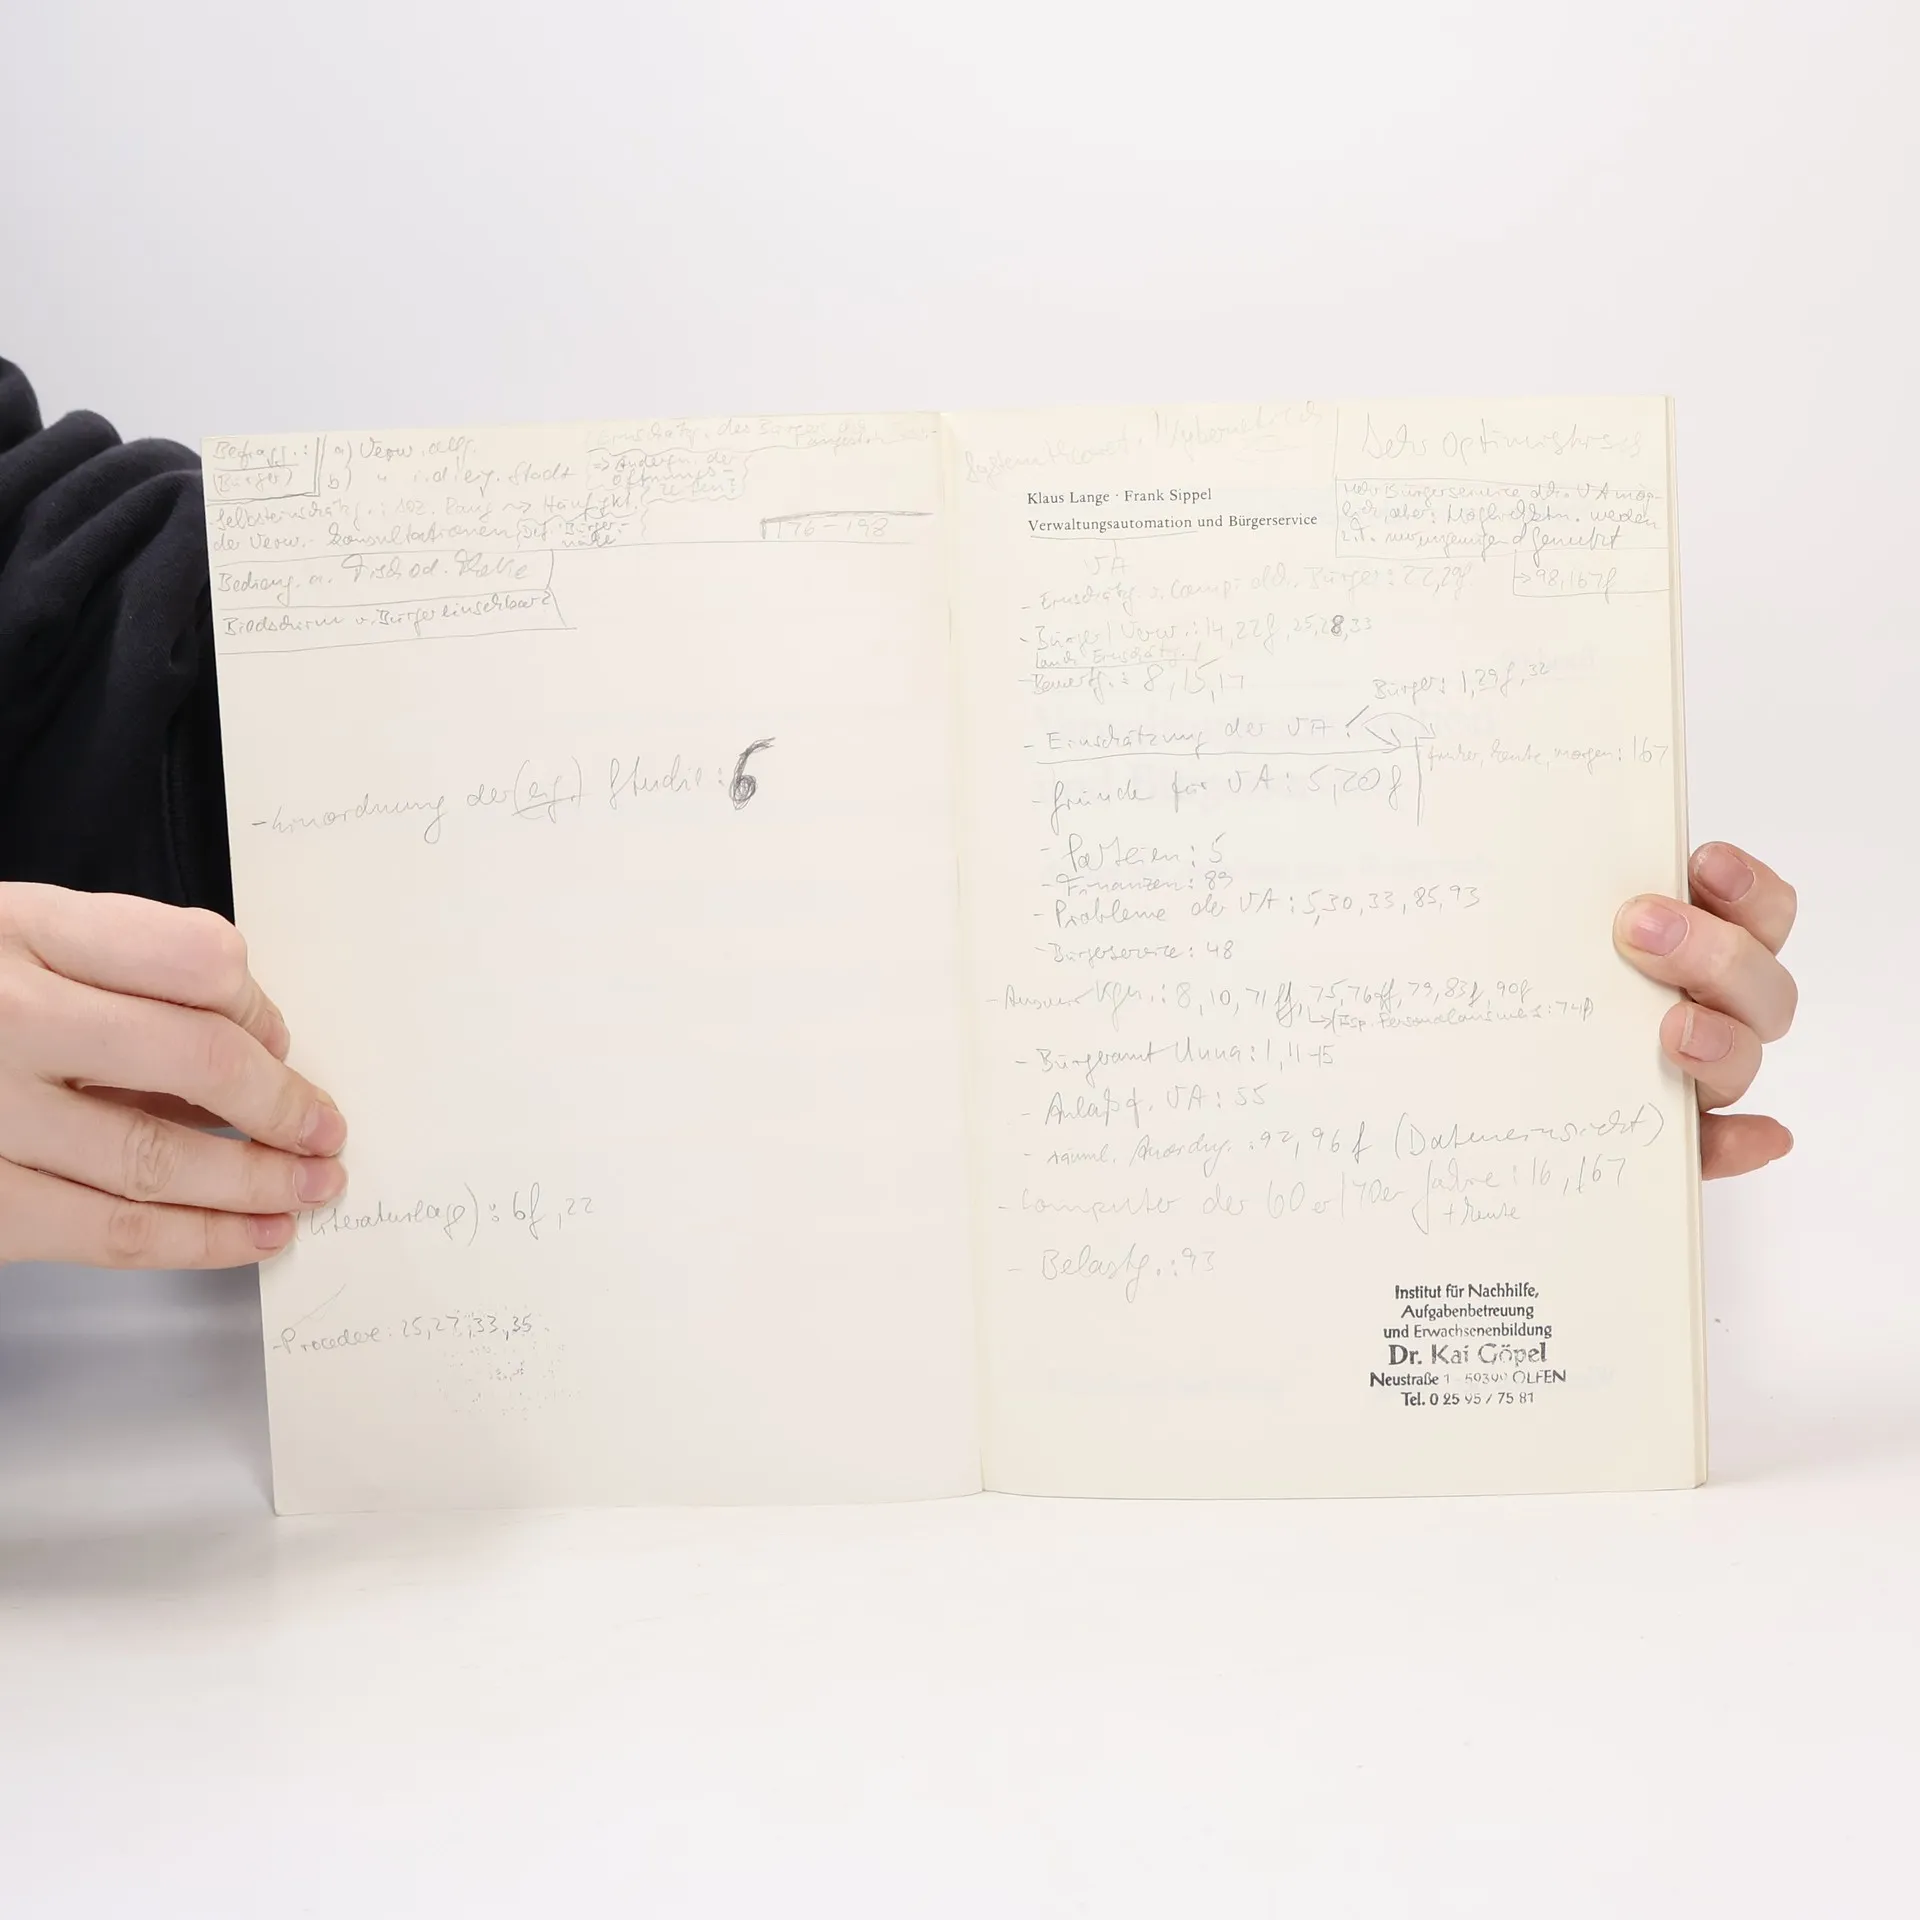 Befragg.: a) Verw. allg.
(Bürger) b) " i. d. eig. Stadt
Einschätzg. des Bürgers
=> Änderg. der
Öffnungs-
zeiten?
Selbsteinschätzg.: soz. Rang ~> Häufgkt.
der Verw.-Konsultationen, Def. Bürger-
nähe
176-198
Bedieng. a. Tisch od. Theke
Bildschirm v. Bürger einsehbar?
- Einordnung der (eig.) Studie: 6
(Literaturlage): 6f, 22
- Procedere: 25, 27, 33, 35
Systemtheoret. / kybernetisch
Sehr optimistisch
Klaus Lange · Frank Sippel
Verwaltungsautomation und Bürgerservice
mehr Bürgerservice dch. VA mög-
lich, aber: Möglichktn. werden
z.T. nur ungenügend genutzt
-> 98, 167f
VA
- Einschätzg. v. Comp. dch. Bürger: 22, 29f
- Bürger / Verw.: 14, 22f, 25, 28, 33
- Bewertg.: 8, 15, 17
Bürger: 1, 29f, 32
- Einschätzung der VA:
früher, heute, morgen: 167
- Gründe für VA: 5, 20f
- Parteien: 5
- Finanzen: 89
- Probleme der VA: 5, 30, 33, 85, 93
- Bürgerservice: 48
- Auswirkgn.: 8, 10, 71ff, 75, 76ff, 79, 83f, 90f
-> (Bsp. Personalausweis: 74f)
- Bürgeramt Unna: 1, 11-15
- Anlaß f. VA: 55
- räuml. Anordng.: 92, 96f (Dateneinsicht)
- Computer der 60er/70er Jahre: 16, 167
+ heute
- Belastg.: 93
Institut für Nachhilfe,
Aufgabenbetreuung
und Erwachsenenbildung
Dr. Kai Göpel
Neustraße 1 OLFEN
Tel. 0 25 95 / 75 81